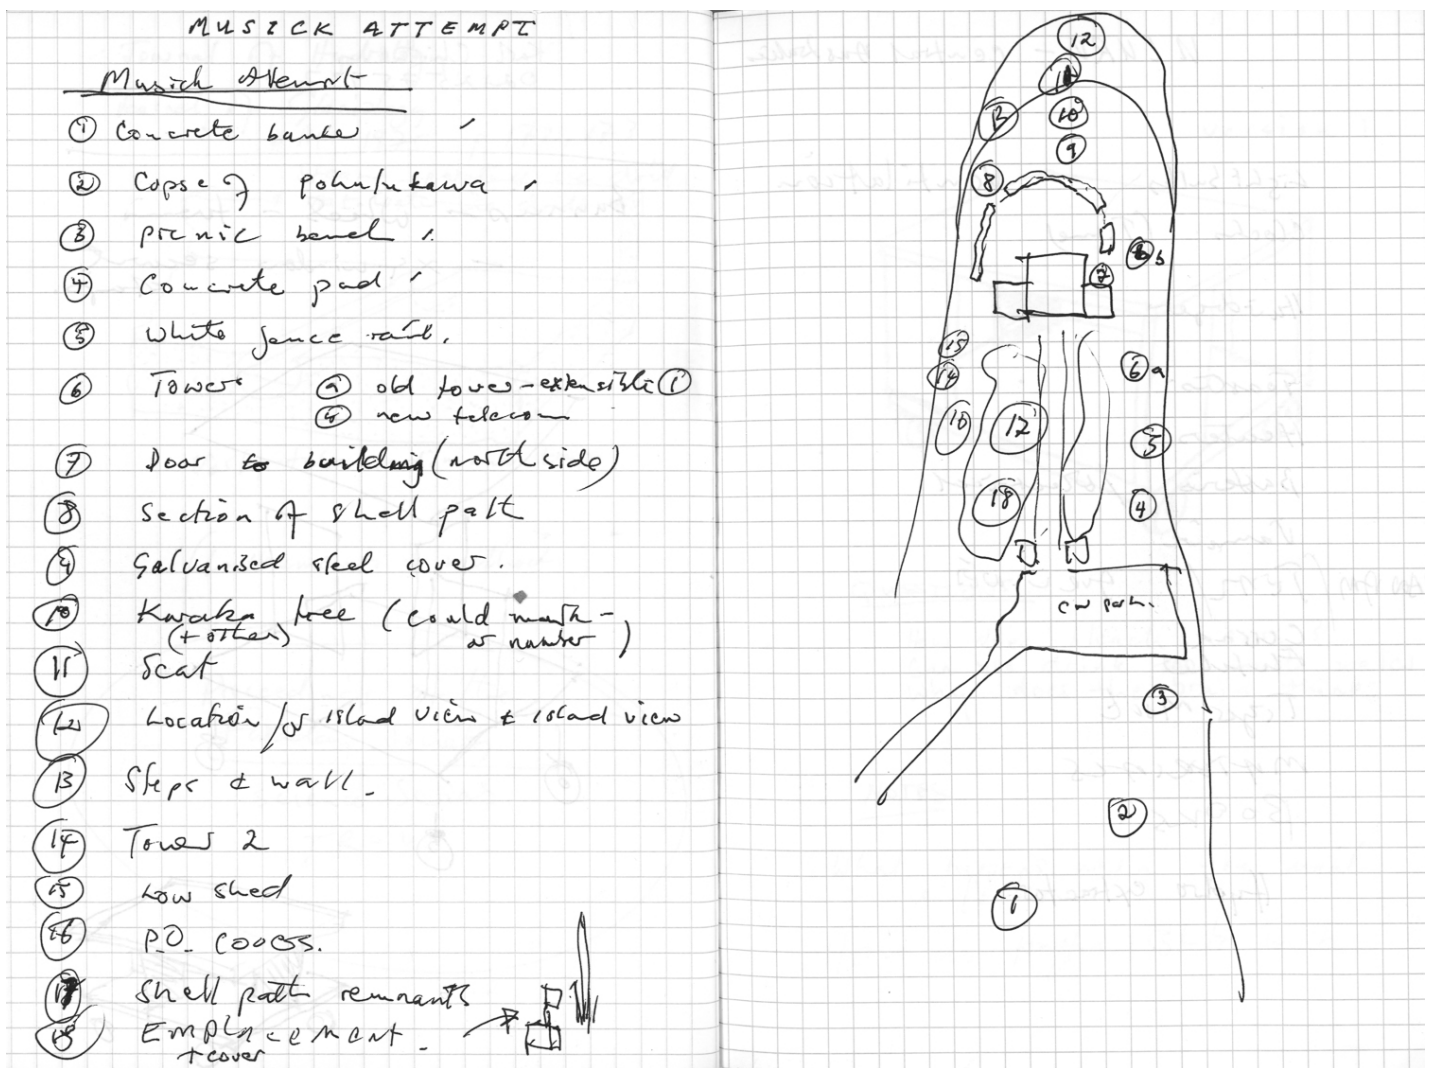 MUSICK ATTEMPT
Musick Attempt
① Concrete bunker
② Copse of pohutukawa
③ picnic bench
④ Concrete pad
⑤ White fence rail.
⑥ Towers ⓐ old tower - extensible ①
ⓑ new telecom
⑦ Door to building (north side)
⑧ Section of shell path
⑨ Galvanised steel cover.
⑩ Karaka tree (could mark -
(+ other) or number)
⑪ Seat
⑫ Location / of island view & island view
⑬ Steps & wall.
⑭ Tower 2
⑮ Low shed
⑯ P.O.
⑰ Shell path remnants
⑱ Emplacement.
+ cover
12
11
13
10
9
8
6b
7
15
14
6a
10
12
5
18
4
car park.
3
2
1